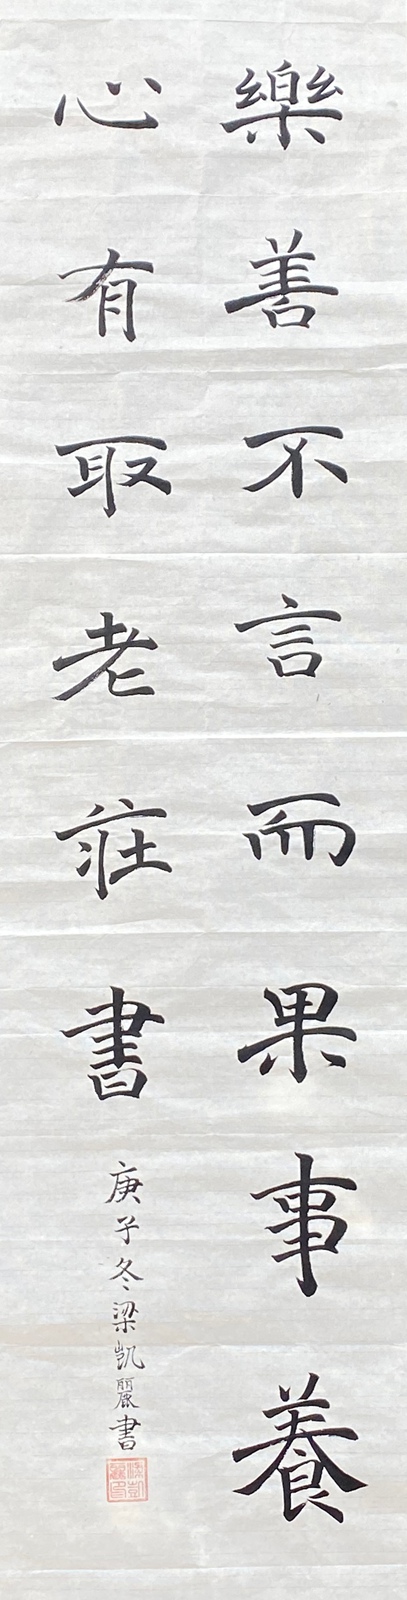 樂善不言而果事養
心有取老莊書
庚子冬梁凱麗書